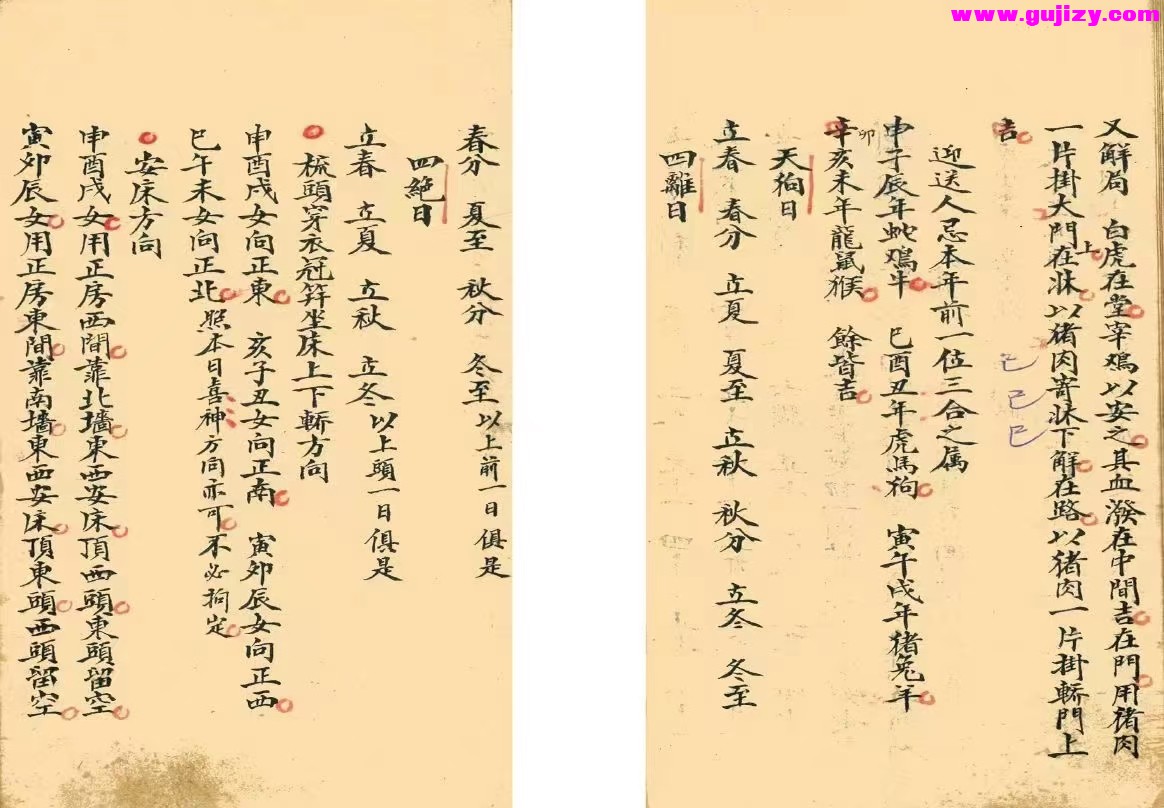 www.gujizy.com
又解局　白虎在堂宰鸡以安之其血潑在中間吉在門用猪肉
一片掛大門上在牀以猪肉寄牀下解在路以猪肉一片掛轎門上
吉
己己巳
迎送人忌本年前一位三合之属
申子辰年蛇鸡牛　巳酉丑年虎馬狗　寅午戌年猪兔羊
辛卯亥未年龍鼠猴　餘皆吉
天狗日
立春　春分　立夏　夏至　立秋　秋分　立冬　冬至
四離日
春分　夏至　秋分　冬至以上前一日俱是
四絶日
立春　立夏　立秋　立冬以上頭一日俱是
梳頭穿衣冠笄坐床上下轎方向
申酉戌女向正東　亥子丑女向正南　寅卯辰女向正西
巳午未女向正北照本日喜神方向亦可不必拘定
安床方向
申酉戌女用正房西間靠北墻東西安床頂西頭東頭留空
寅卯辰女用正房東間靠南墻東西安床頂東頭西頭留空